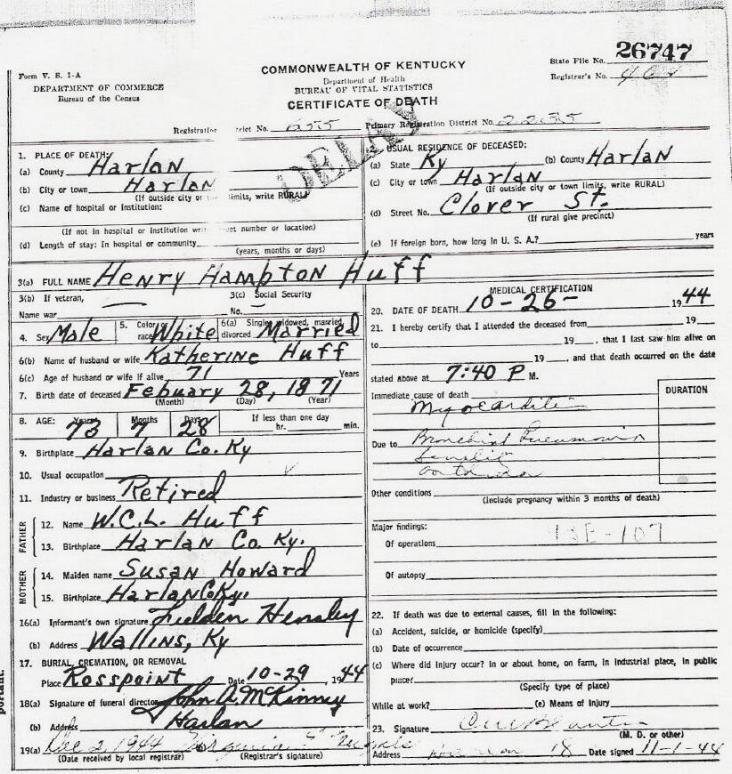 26747
COMMONWEALTH OF KENTUCKY
State File No.
Form V. S. 1-A
Department of Health
Registrar's No.
DEPARTMENT OF COMMERCE
BUREAU OF VITAL STATISTICS
Bureau of the Census
CERTIFICATE OF DEATH
Registration trict No. 655 Primary Registration District No. 2235
1. PLACE OF DEATH:
(a) County Harlan
(b) City or town Harlan
(If outside city or limits, write RURAL)
(c) Name of hospital or Institution:
(If not in hospital or Institution write et number or location)
(d) Length of stay: In hospital or community
(years, months or days)
USUAL RESIDENCE OF DECEASED:
(a) State Ky (b) County Harlan
(c) City or town Harlan
(If outside city or town limits, write RURAL)
(d) Street No. Clover St.
(If rural give precinct)
(e) If foreign born, how long in U. S. A.? years
3(a) FULL NAME Henry Hampton Huff
3(b) If veteran, 3(c) Social Security
Name war No.
4. Sex Male 5. Color or race White 6(a) Single, widowed, married, divorced Married
6(b) Name of husband or wife Katherine Huff
6(c) Age of husband or wife if alive 71 Years
7. Birth date of deceased Febuary 28, 1871
(Month) (Day) (Year)
8. AGE: Years Months Days If less than one day
73 7 28 hr. min.
9. Birthplace Harlan Co. Ky
10. Usual occupation
11. Industry or business Retired
FATHER
12. Name W.C.L. Huff
13. Birthplace Harlan Co. Ky.
MOTHER
14. Maiden name Susan Howard
15. Birthplace Harlan Co Ky.
16(a) Informant's own signature Fulden Hensley
(b) Address Wallins, Ky
17. BURIAL, CREMATION, OR REMOVAL
Place Rosspoint Date 10-29, 1944
18(a) Signature of funeral director John A. McKinney
(b) Address Harlan
19(a) Dec 2, 1944 Virginia
(Date received by local registrar) (Registrar's signature)
MEDICAL CERTIFICATION
20. DATE OF DEATH 10-26- 1944
21. I hereby certify that I attended the deceased from 19
to 19 , that I last saw him alive on
19 , and that death occurred on the date
stated above at 7:40 P M.
Immediate cause of death DURATION
Myocarditis
Due to Bronchial Pneumonia
Other conditions
(Include pregnancy within 3 months of death)
Major findings:
Of operations
Of autopsy
22. If death was due to external causes, fill in the following:
(a) Accident, suicide, or homicide (specify)
(b) Date of occurrence
(c) Where did injury occur? In or about home, on farm, in industrial place, in public
place?
(Specify type of place)
While at work? (e) Means of Injury
23. Signature
(M. D. or other)
Address Date signed 11-1-44
portant.